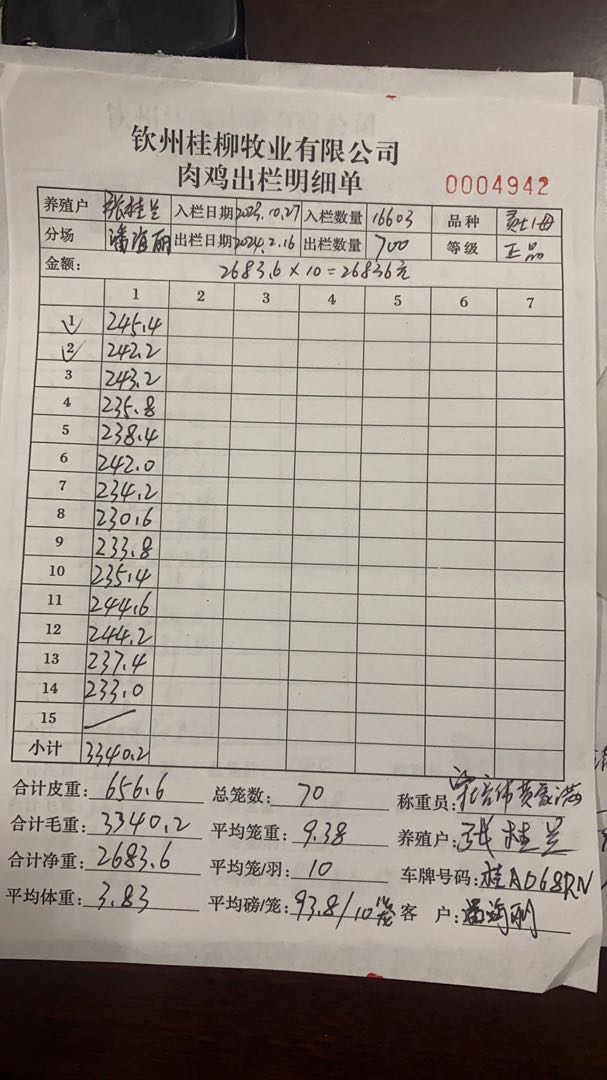 钦州桂柳牧业有限公司
肉鸡出栏明细单 0004942
养殖户 张桂兰 入栏日期 2023.10.27 入栏数量 16603 品种
分场 出栏日期 2024.2.16 出栏数量 700 等级 正品
金额: 2683.6×10=26836元
1 2 3 4 5 6 7
1 245.4
2 242.2
3 243.2
4 235.8
5 238.4
6 242.0
7 234.2
8 230.6
9 233.8
10 235.4
11 244.6
12 244.2
13 237.4
14 233.0
15
小计 3340.2
合计皮重: 656.6 总笼数: 70 称重员:
合计毛重: 3340.2 平均笼重: 9.38 养殖户: 张桂兰
合计净重: 2683.6 平均笼/羽: 10 车牌号码: 桂AD68RN
平均体重: 3.83 平均磅/笼: 93.8/10 客 户: